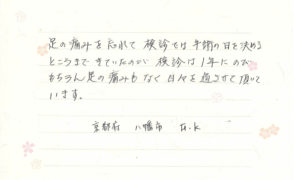 足の痛みを忘れて 検診では手術の日を決める
ところまできていたのが 検診は1年にのび
もちろん足の痛みもなく日々を過させて頂いて
います。
京都府 八幡市 H.K